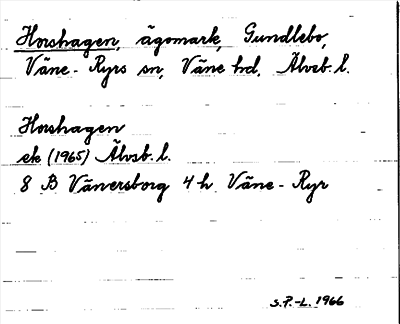 Horshagen, ägomark, Gundlebo,
Väne-Ryrs sn, Väne hd, Älvsb. l.
Horshagen
ek (1965) Älvsb. l.
8 B Vänersborg 4 h Väne-Ryr
S.P.-L. 1966